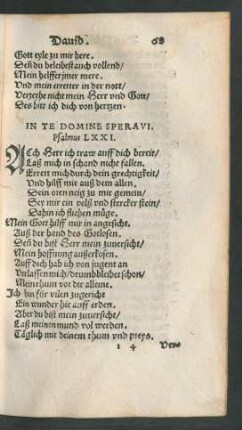 Dauid. 68
Gott eyle zu mir here.
Deñ du beleibest auch vollend/
Mein helfferjmer mere.
Vnd mein erretter in der nott/
Verzeche nicht mein Herr vnd Gott/
Des bitt ich dich von hertzen.
IN TE DOMINE SPERAVI.
Psalmus LXXI.
ACch Herr ich traw auff dich bereit/
Laß mich in schand nicht fallen.
Errett mich durch dein grechtigkeit/
Vnd hilff mir auß dem allen.
Dein oren neig zu mir gemein/
Sey mir ein velß und stercker stein/
Dahin ich fliehen müge.
Mein Gott hilff mir in angesicht.
Auß der hand des Gotlosen.
Deñ du bist Herr mein zuuersicht/
Mein hoffnung außerkosen.
Auff dich hab ich von jugent an
Verlassen mich/drumb bleibet schon/
Mein rhum vor dir alleine.
Ich bin für vilen zugericht
Ein wunder hie auff erden.
Aber du bist mein zuuersicht/
Laß meinen mund vol werden.
Täglich mit deinem rhum vnd preyß.
I 4